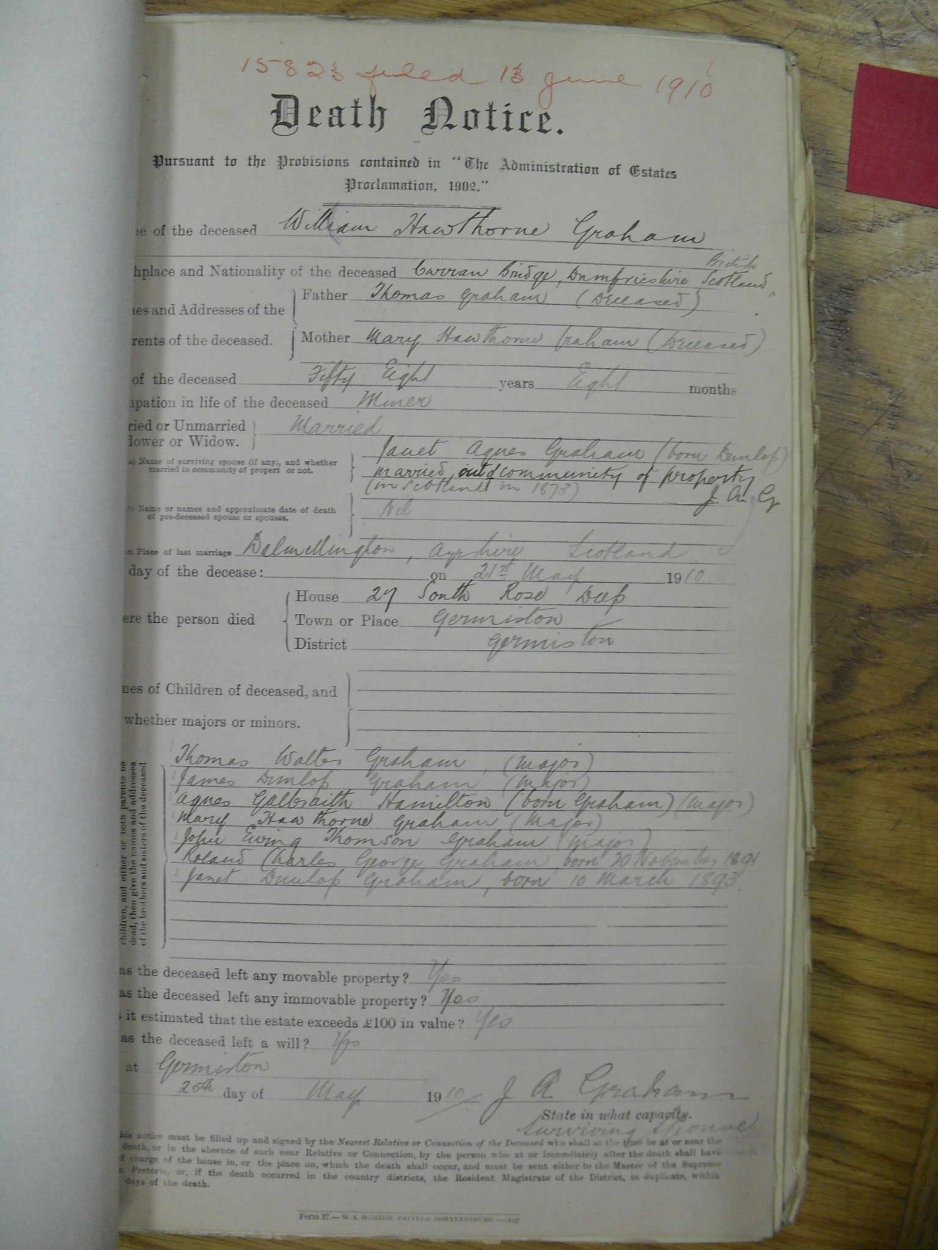 15823 filed 13 June 1910
Death Notice.
Pursuant to the Provisions contained in "The Administration of Estates
Proclamation, 1902."
e of the deceased William Hawthorne Graham
British
hplace and Nationality of the deceased Carran Bridge, Dumfrieshire Scotland,
es and Addresses of the
rents of the deceased.
Father Thomas Graham (Deceased)
Mother Mary Hawthorne Graham (Deceased)
of the deceased Fifty Eight years Eight months
upation in life of the deceased Miner
ried or Unmarried
dower or Widow. Married
a) Name of surviving spouse (if any), and whether
married in community of propert or not.
Janet Agnes Graham (born Dunlop)
married out of community of property
(in Scotland in 1873) J A G
Name or names and approximate date of death
of pre-deceased spouse or spouses. Nil
Place of last marriage Dalmellington, Ayrshire Scotland
day of the decease: on 21st May 1910.
ere the person died
House 27 South Rose Deep
Town or Place Germiston
District Germiston
nes of Children of deceased, and
whether majors or minors.
children, and either or both parents be
dead, then give the names and addresses
of the brothers and sisters of the deceased
Thomas Walter Graham (major)
James Dunlop Graham (major)
Agnes Galbraith Hamilton (born Graham) (major)
Mary Hawthorne Graham (major)
John Ewing Thomson Graham (major)
Roland Charles George Graham, born 20 November 1891
Janet Dunlop Graham, born 10 March 1893
as the deceased left any movable property? Yes
as the deceased left any immovable property? Yes
s it estimated that the estate exceeds £100 in value? Yes
as the deceased left a will? Yes
at Germiston
26th day of May 1910 J A Graham
State in what capacity.
Surviving Spouse
his notice must be filled up and signed by the Nearest Relative or Connection of the Deceased who shall at the time be at or near the
death, or in the absence of such near Relative or Connection, by the person who at or immediately after the death shall have
f charge of the house in, or the place on, which the death shall occur, and must be sent either to the Master of the Supreme
Pretoria, or, if the death occurred in the country districts, the Resident Magistrate of the District, in duplicate, within
days of the death.
Form 37.—W. E. HORTOR, PRINTER, JOHANNESBURG.